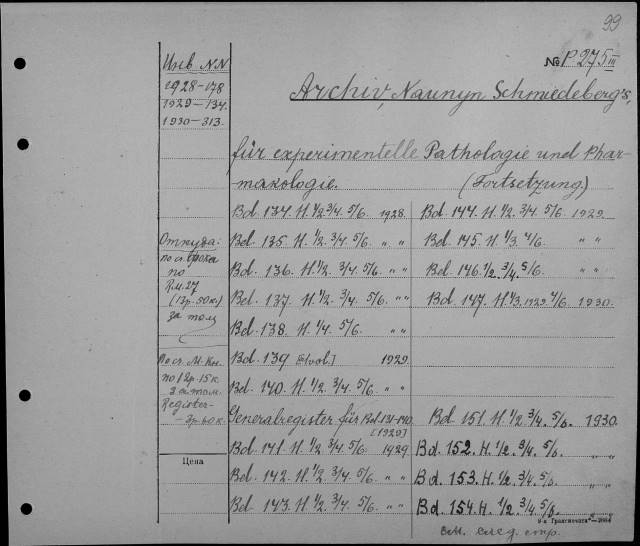 99
№ P 275 III
Инв. NN
1928—178
1929—134.
1930—313.
Archiv, Naunyn Schmiedeberg's,
für experimentelle Pathologie und Phar-
makologie. (Fortsetzung.)
Откуда:
по
R.M. 27
(13р. 50к.)
за том
по 12р. 15к.
за том.
Register—
Цена
Bd. 134. H. 1/2. 3/4. 5/6. 1928.
Bd. 135. H. 1/2. 3/4. 5/6. " "
Bd. 136. H. 1/2. 3/4. 5/6. " "
Bd. 137. H. 1/2. 3/4. 5/6. " "
Bd. 138. H. 1/4. 5/6.
Bd. 139 [1929.
Bd. 140. H. 1/2. 3/4. 5/6. " "
Generalregister für Bd. 131-140.
[1929]
Bd. 141. H. 1/2. 3/4. 5/6. 1929
Bd. 142. H. 1/2. 3/4. 5/6. " "
Bd. 143. H. 1/2. 3/4. 5/6. " "
Bd. 144. H. 1/2. 3/4. 5/6. 1929.
Bd. 145. H. 1/3. 4/6. " "
Bd. 146. 1/2. 3/4. 5/6. " "
Bd. 147. H. 1/3. 1929. 4/6. 1930.
Bd. 151. H. 1/2. 3/4. 5/6. 1930.
Bd. 152. H. 1/2. 3/4. 5/6. " "
Bd. 153. H. 1/2. 3/4. 5/6.
Bd. 154. H. 1/2. 3/4. 5/6.
см. след. стр.